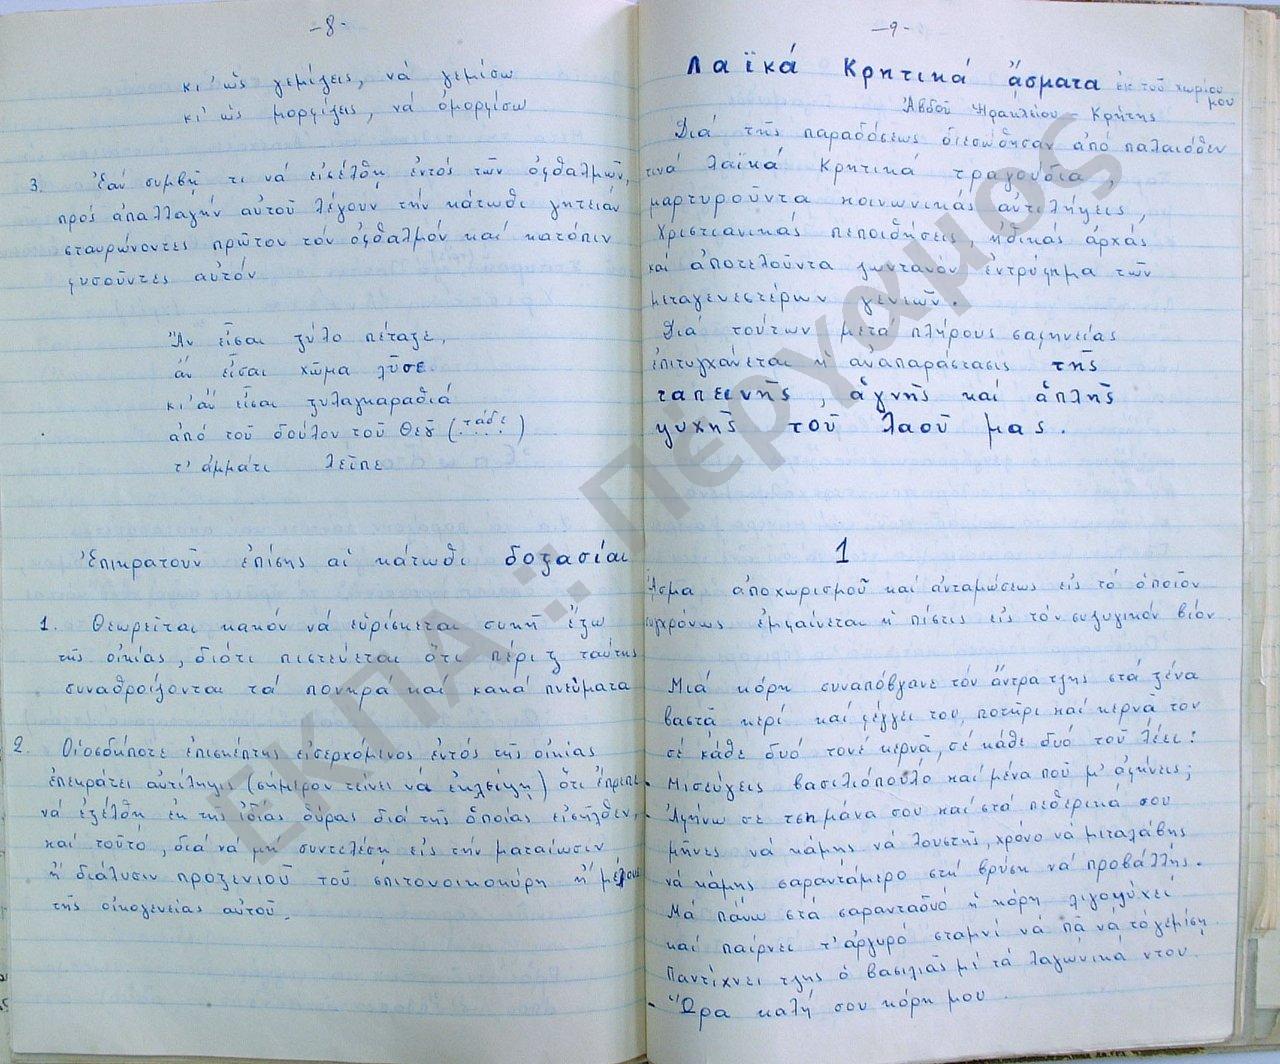 -8-
κι' ὡς γεμίζεις, νά γεμίσω
κι' ὡς μορφίζεις, νά ὁμορφίσω.
3. Ἐάν συμβῇ τι νά εἰσέλθῃ ἐντός τῶν ὀφθαλμῶν,
πρός ἀπαλλαγήν αὐτοῦ λέγουν τήν κάτωθι γητειάν
σταυρώνοντες πρῶτον τόν ὀφθαλμόν καί κατόπιν
φυσοῦντες αὐτόν.
Ἄν εἶσαι ξύλο πέταξε,
ἄν εἶσαι χῶμα λῦσε
κι' ἄν εἶσαι ξυλαγκαραθιά
ἀπό τοῦ δούλου τοῦ Θεοῦ (τάδε)
τ' ἀμμάτι λεῖπε
Ἐπικρατοῦν ἐπίσης αἱ κάτωθι δοξασίαι
1. Θεωρεῖται κακόν νά εὑρίσκεται συκῆ ἔξω
τῆς οἰκίας, διότι πιστεύεται ὅτι πέριξ ταύτης
συναθροίζονται τά πονηρά καί κακά πνεύματα
2. Οἱοσδήποτε ἐπισκέπτης εἰσερχόμενος ἐντός τῆς οἰκίας
ἐπεκράτει ἀντίληψις (σήμερον τείνει νά ἐκλείψῃ) ὅτι ἔπρεπε
νά ἐξέλθῃ ἐκ τῆς ἰδίας θύρας διά τῆς ὁποίας εἰσῆλθεν,
καί τοῦτό, διά νά μή συντελέσῃ εἰς τήν ματαίωσιν
ἤ διάλυσιν προξενιοῦ τοῦ σπιτονοικοκύρη ἤ μέλους
τῆς οἰκογενείας αὐτοῦ.
-9-
Λαϊκά Κρητικά ᾄσματα ἐκ τοῦ χωρίου μου
Ἀβδοῦ Ἡρακλείου - Κρήτης
Διά τῆς παραδόσεως διεσώθησαν ἀπό παλαιόθεν
τινά λαϊκά Κρητικά τραγούδια,
μαρτυροῦντα κοινωνικάς ἀντιλήψεις,
Χριστιανικάς πεποιθήσεις, ἠθικάς ἀρχάς
καί ἀποτελοῦντα ζωντανόν ἐντρύφημα τῶν
μεταγενεστέρων γενεῶν.
Διά τούτων μετά πλήρους σαφηνείας
ἐπιτυγχάνεται ἡ ἀναπαράστασις τῆς
ταπεινῆς, ἁγνῆς καί ἁπλῆς
ψυχῆς τοῦ λαοῦ μας.
1
Ἄσμα ἀποχωρισμοῦ καί ἀνταμώσεως εἰς τό ὁποῖον
συγχρόνως ἐμφαίνεται ἡ πίστις εἰς τόν συζυγικόν βίον.
Μιά κόρη συναπόβγανε τόν ἄντρα τζης στά ξένα
βαστᾷ κερί καί φέγγει του, ποτήρι καί κερνᾷ τον
σέ κάθε δυό τονέ κερνᾷ, σέ κάθε δυό τοῦ λέει:
- Μισεύγεις βασιλιόπουλο καί μένα ποῦ μ' ἀφήνεις;
- Ἀφήνω σε τση μάνα σου καί στά πεθερικά σου
μῆνες νά κάμης νά λουστῆς, χρόνο νά μεταλάβης
νά κάμης σαραντάμερο στή βρύση νά προβάλλῃς.
Μά πάνω στά σαρανταδυό ἡ κόρη λιγοψυχεῖ
καί παίρνει τ' ἀργυρό σταμνί νά πᾶ νά τό γεμίση
Παντήχνει τζης ὁ βασιλιᾶς μέ τά λαγωνικά ντου.
- Ὥρα καλή σου κόρη μου.
ΕΚΠΑ :: Πέργαμος